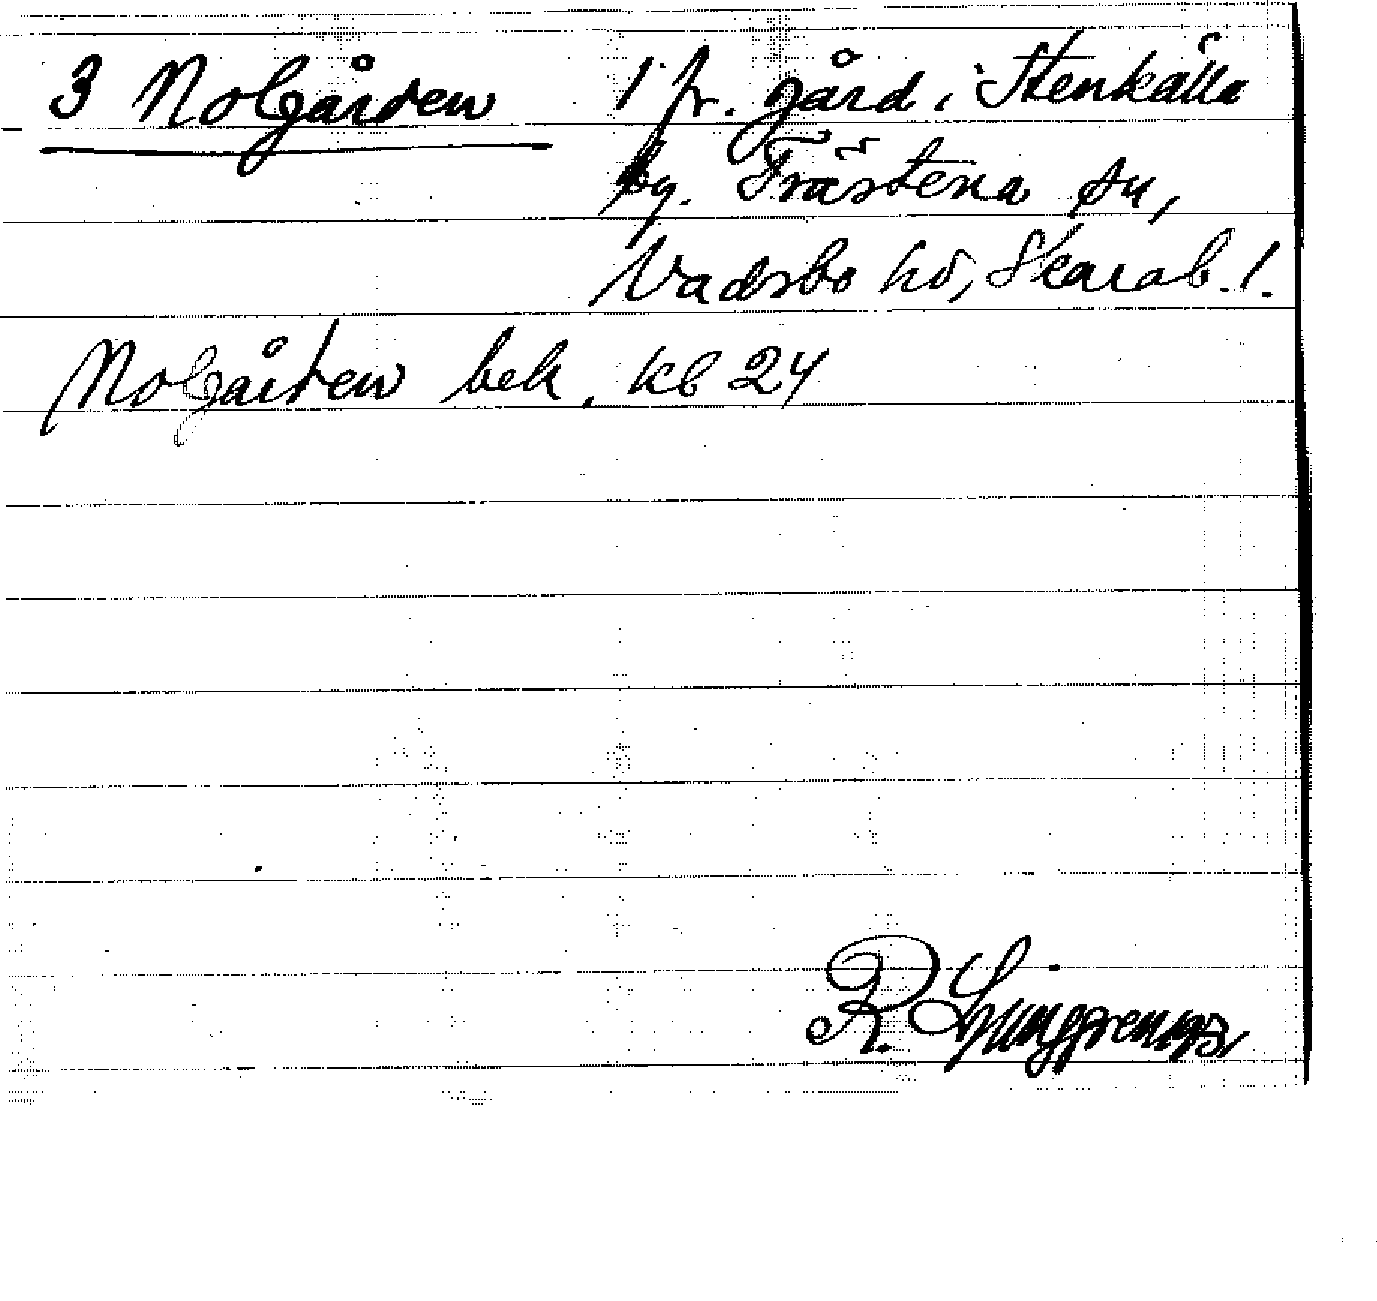 3 Nolgården 1 fr. gård i Stenkälla
by. Trästena sn,
Vadsbo hd, Skarab. l.
Nolgården bek. kb 24
R. Ljunggren